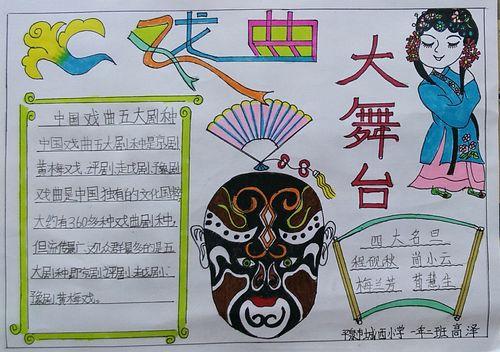 戏曲
大舞台
中国戏曲五大剧种
中国戏曲五大剧种是京剧
黄梅戏、评剧、越剧、豫剧
戏曲是中国独有的文化国粹
大约有360多种戏曲剧种,
但流传最广观众群最多的是五
大剧种即京剧、评剧、越剧、
豫剧、黄梅戏。
四大名旦
程砚秋 尚小云
梅兰芳 荀慧生
城西小学 一年二班 高泽